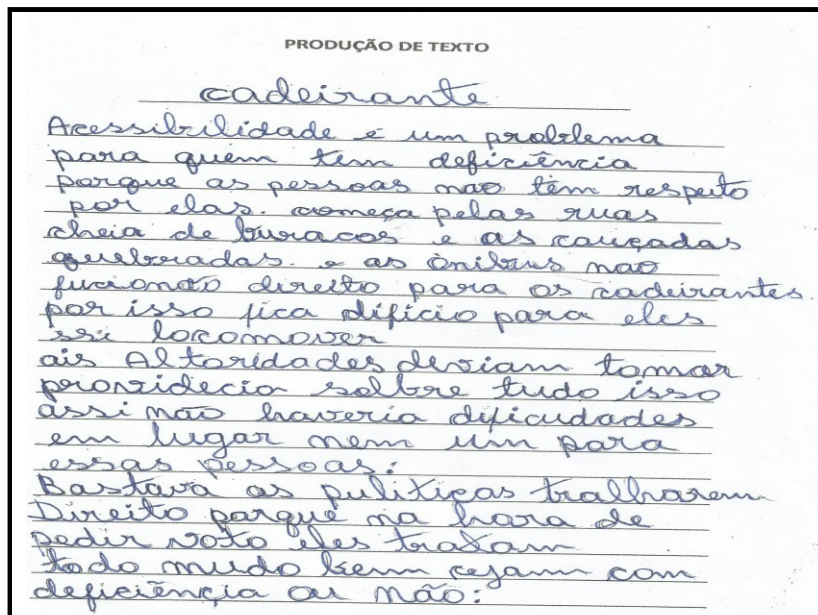 PRODUÇÃO DE TEXTO
cadeirante
Acessibilidade e um problema
para quem tem deficiência
porque as pessoas não têm respeito
por elas. começa pelas ruas
cheia de buracos e as cauçadas
quebradas. e as ônibus nao
fucionão direito para os cadeirantes.
por isso fica dificio para eles
ssi locomover
ais Altoridades deviam tomar
providecia sobre tudo isso
assi não haveria dificudades
em lugar nem um para
essas pessoas:
Bastava as puliticas trabharem
Direito porque na hora de
pedir voto eles tratam
todo mudo bem cejam com
deficiência ou não: